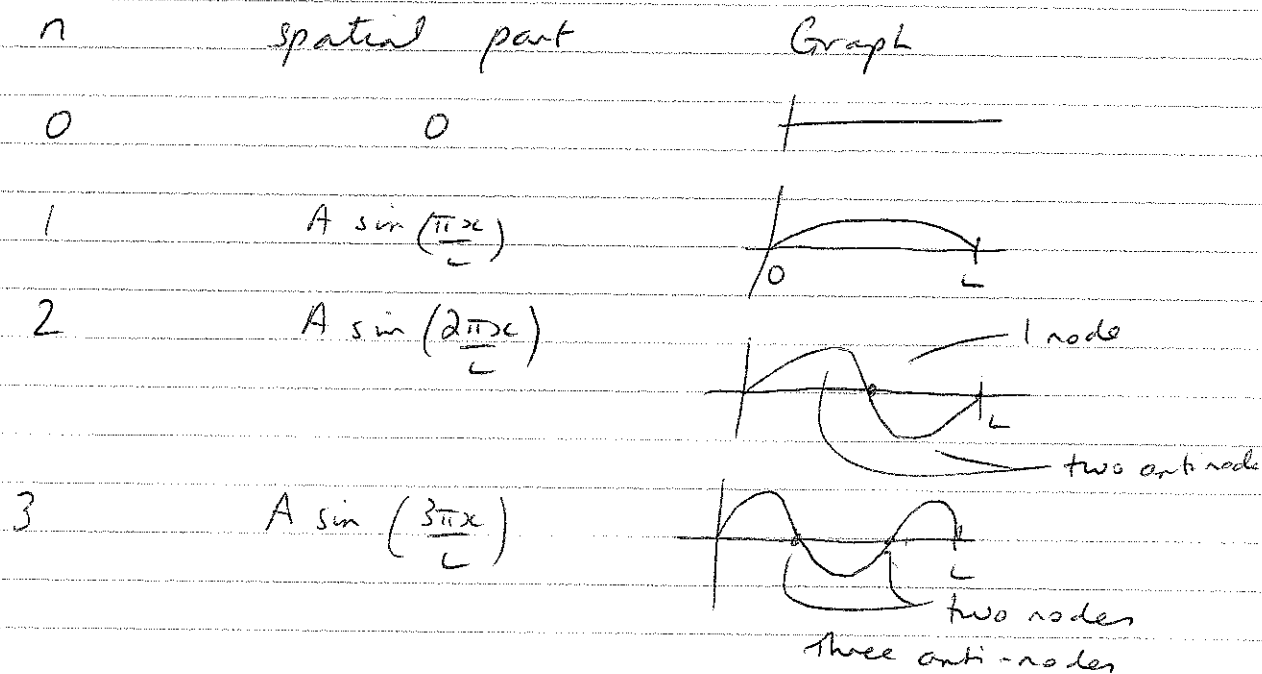 n spatial part Graph
0 0
1 A sin (πx/L)
0 L
2 A sin (2πx/L)
1 node
L
two antinode
3 A sin (3πx/L)
L
two nodes
three anti-nodes